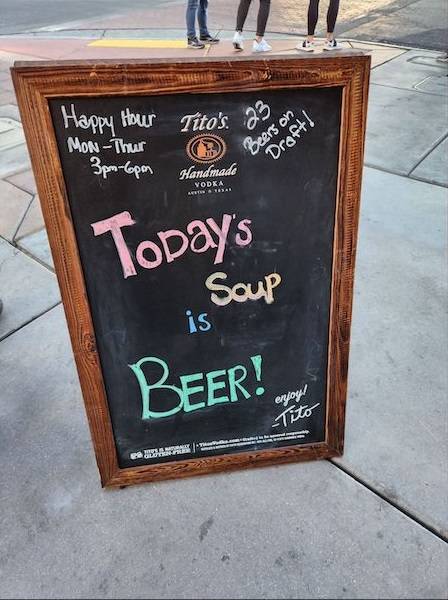 Happy Hour
Mon-Thur
3pm-6pm
Tito's
Handmade
VODKA
AUSTIN TEXAS
23
Beers on
Draft!
Today's
Soup
is
BEER!
enjoy!
-Tito
TITO'S IS NATURALLY
GLUTEN-FREE